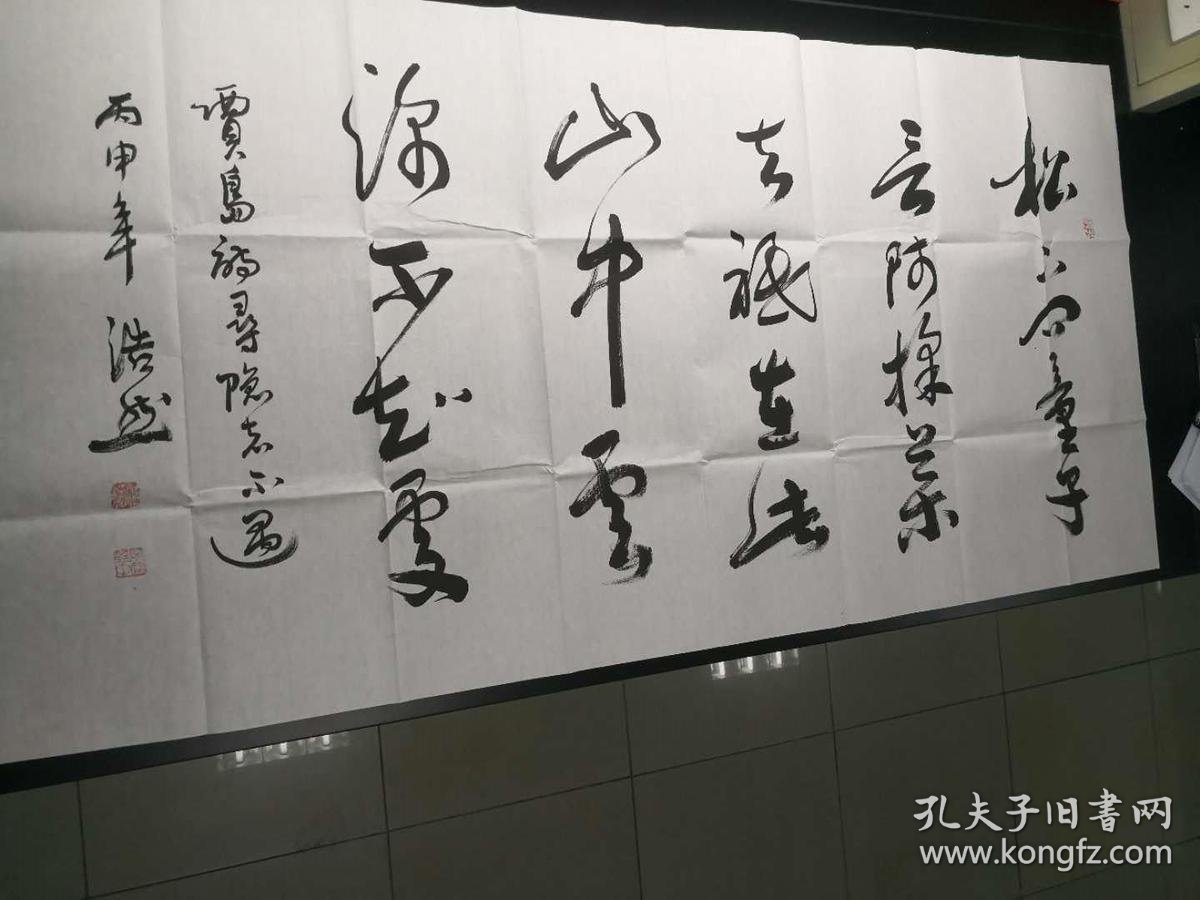 松下问童子
言師採藥
去祗在此
山中雲
深不知處
價島詩尋隐者不遇
丙申年 浩然
孔夫子旧書网
www.kongfz.com